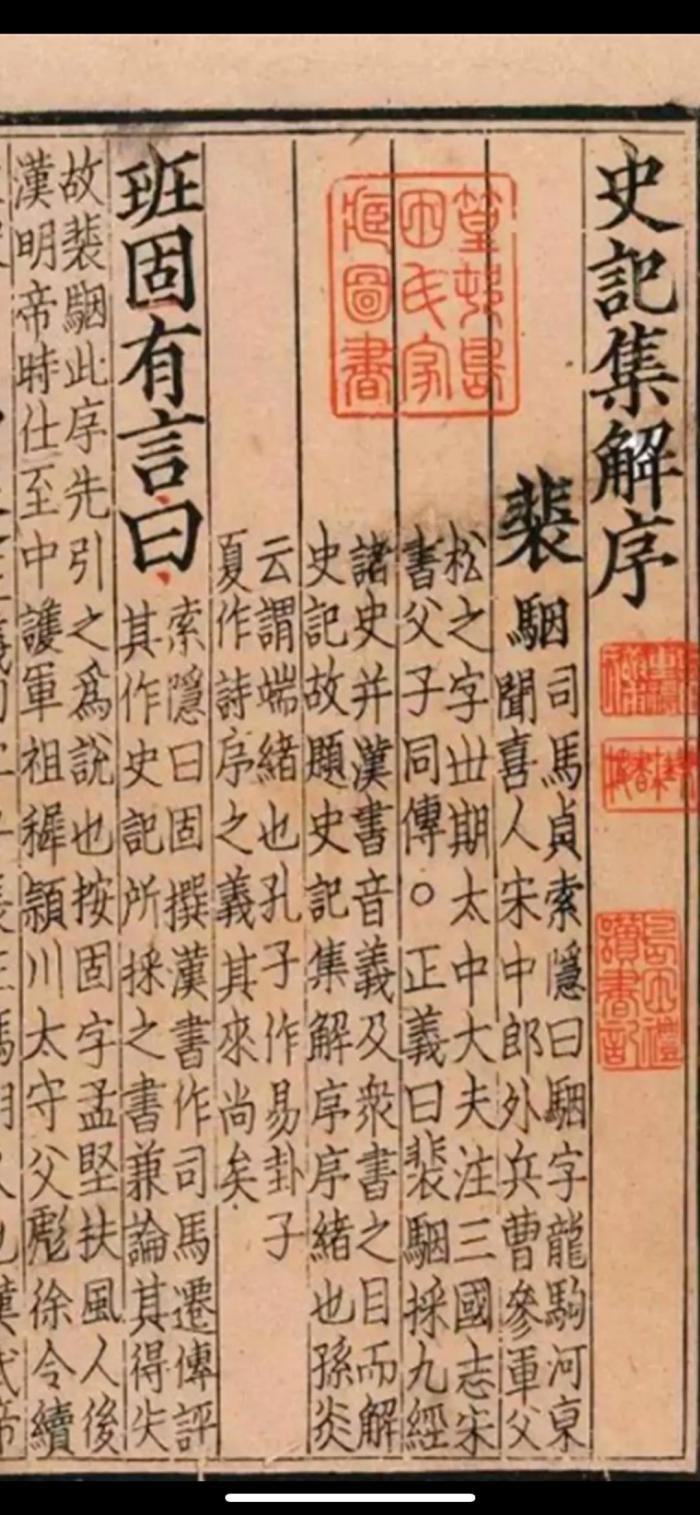 史記集解序
裴駰
司馬貞索隱曰駰字龍駒河東
聞喜人宋中郎外兵曹參軍父
松之字丗期太中大夫注三國志宋
書父子同傳○正義曰裴駰採九經
諸史并漢書音義及衆書之目而解
史記故題史記集解序序緒也孫炎
云謂端緒也孔子作易卦子
夏作詩序之義其來尚矣
班固有言曰
索隱曰固撰漢書作司馬遷傳評
其作史記所採之書兼論其得失
故裴駰此序先引之爲說也按固字孟堅扶風人後
漢明帝時仕至中護軍祖穉潁川太守父彪徐令續
篁邨島
田氏家
藏圖書